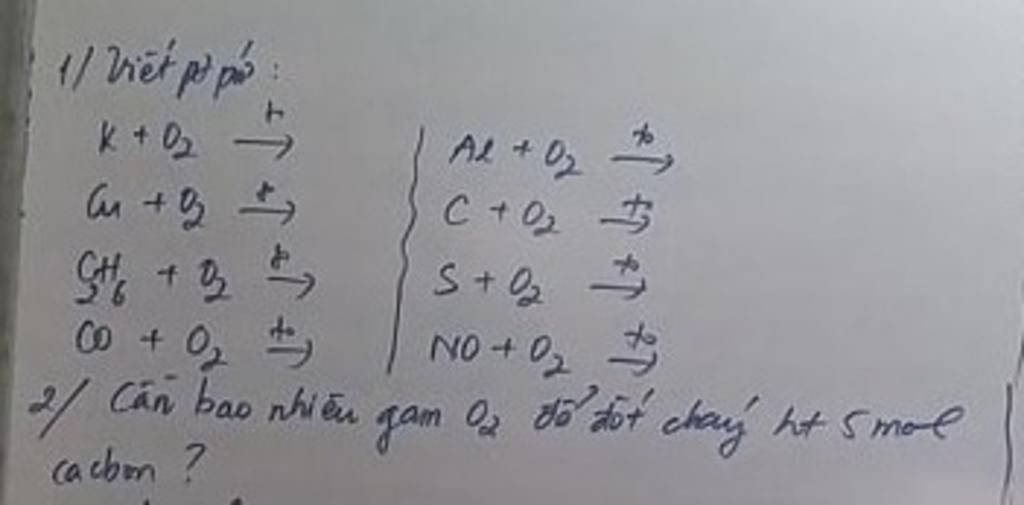 1/ Viết pt pứ :
K + O2 →
Cu + O2 →
C2H6 + O2 →
CO + O2 →
Al + O2 →
C + O2 →
S + O2 →
NO + O2 →
2/ Cần bao nhiêu gam O2 để đốt cháy ht 5 mol
cacbon ?